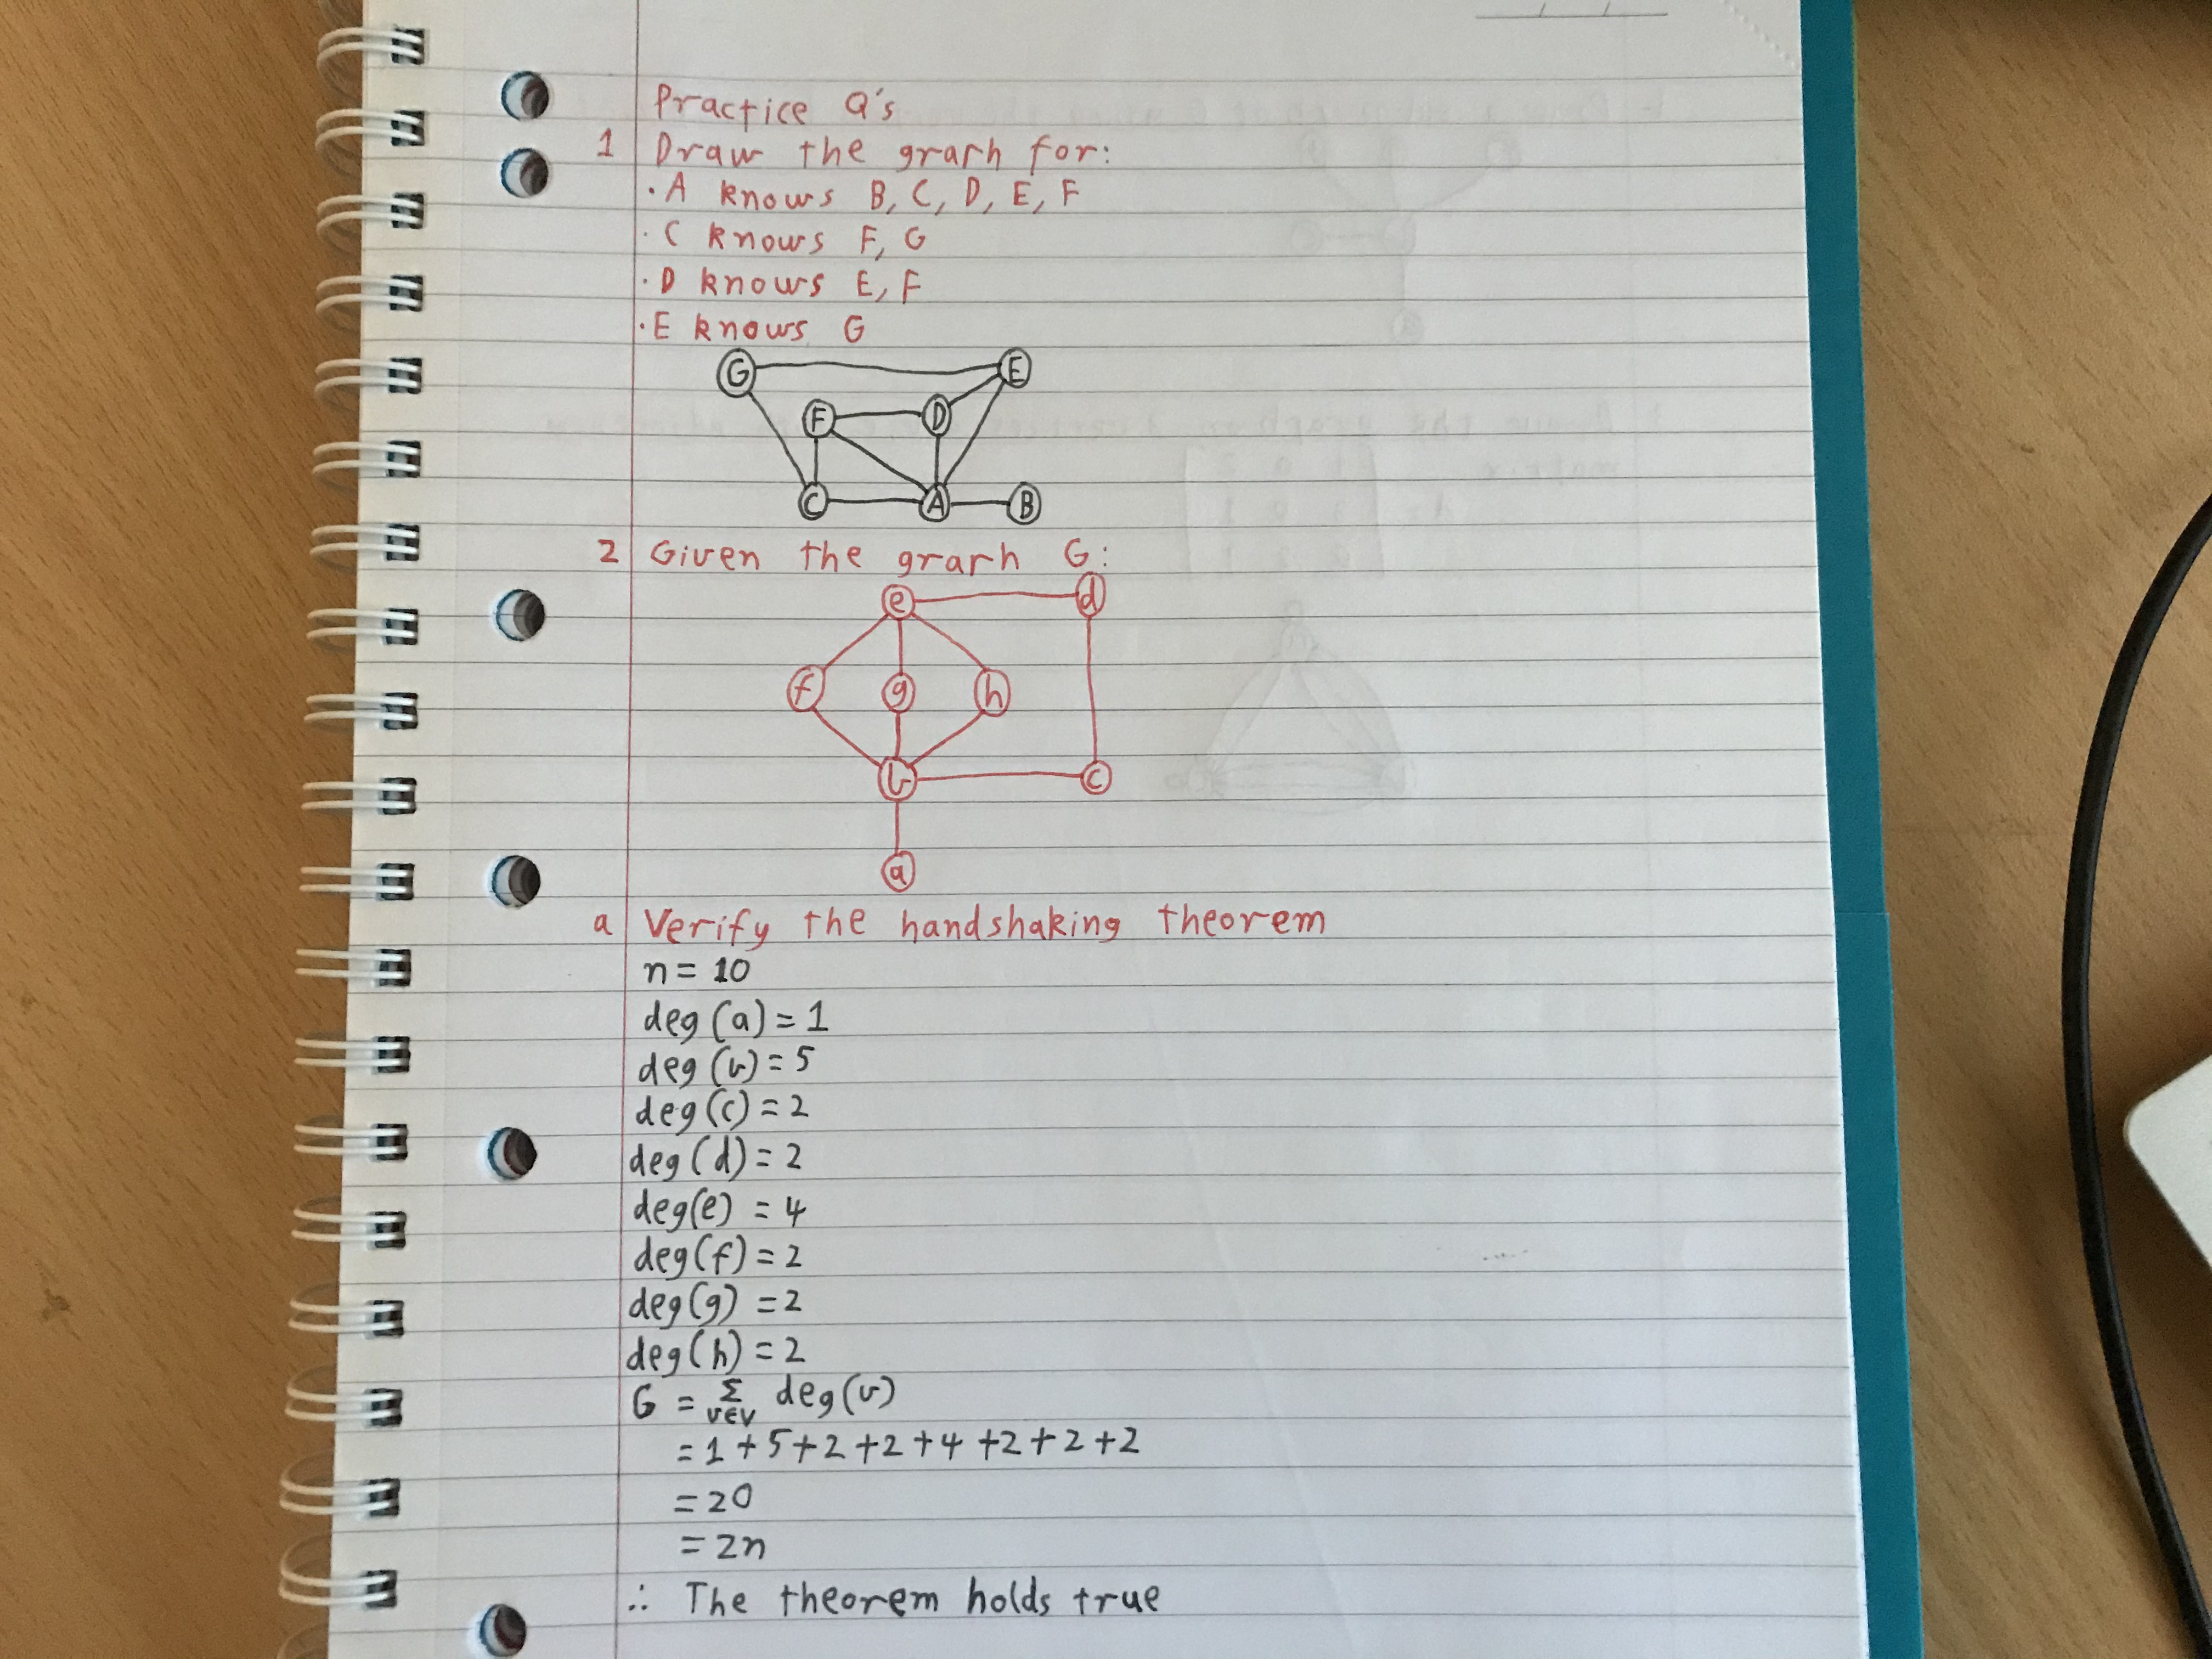 Practice Q's
1 Draw the graph for:
· A knows B, C, D, E, F
· C knows F, G
· D knows E, F
· E knows G
G E
F D
C A B
2 Given the graph G:
e d
f g h
b c
a
a Verify the handshaking theorem
n = 10
deg(a) = 1
deg(b) = 5
deg(c) = 2
deg(d) = 2
deg(e) = 4
deg(f) = 2
deg(g) = 2
deg(h) = 2
G = Σ v∈V deg(v)
= 1 + 5 + 2 + 2 + 4 + 2 + 2 + 2
= 20
= 2n
∴ The theorem holds true